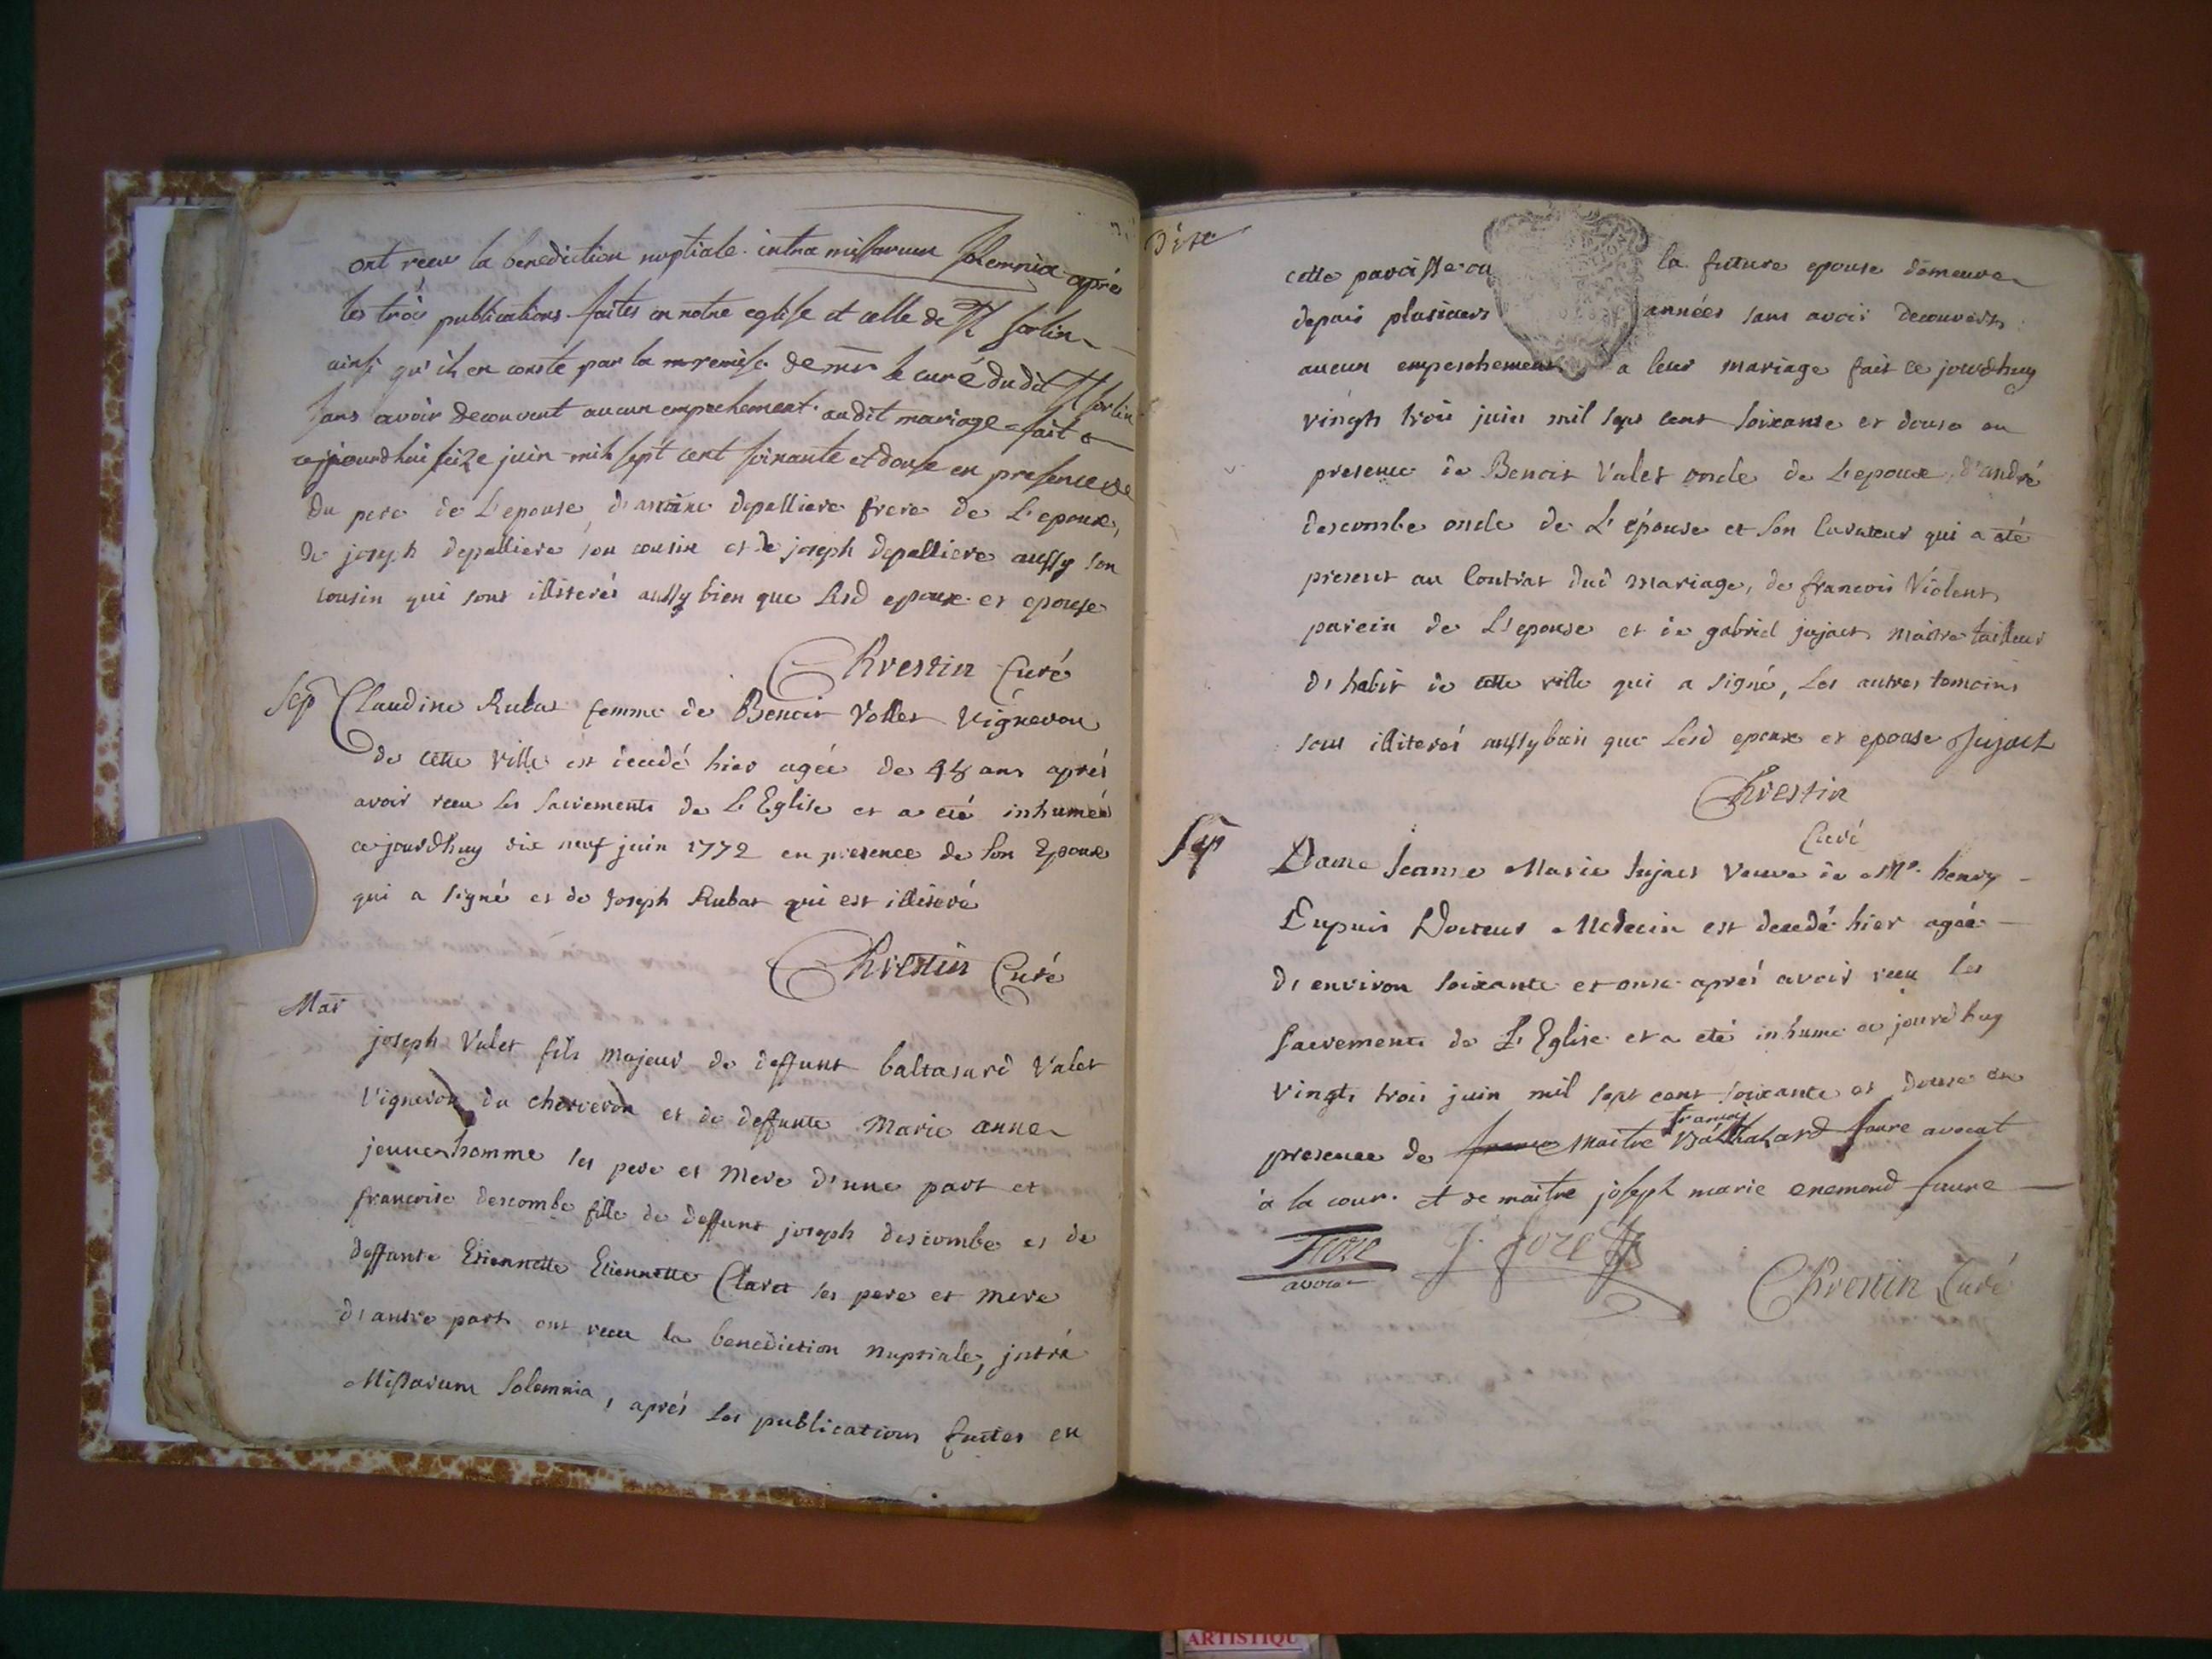 ont receu la benediction nuptiale intra missarum solemnia après
les trois publications faites en notre eglise et celle de St Sorlin
ainsi qu'il en conste par la remise de mr le curé dudit St Sorlin
sans avoir decouvert aucun empechement audit mariage fait
cejourdhui seize juin mil sept cent soixante et douse en presence
du pere de L'epouse, d'antoine depalliere frere de L'epoux,
de joseph depalliere son cousin et de joseph depalliere aussy son
cousin qui sont illiterés aussy bien que lesd epoux et epouse
Chrestin Curé
Sep Claudine Rubat femme de Benoit Vallet Vigneron
de cette ville est decedé hier agée de 48 ans aprés
avoir receu les sacrements de L'Eglise et a eté inhumée
cejourdhuy dix neuf juin 1772 en presence de son Epoux
qui a signé et de Joseph Rubat qui est illiteré
Chrestin Curé
Mar
joseph Valet fils majeur de deffunt baltasard Valet
Vigneron du cherveron et de deffunte Marie anne
jeune homme ses pere et mere d'une part et
francoise descombe fille de deffunt joseph descombe et de
deffunte Etiennette Etiennette Claret ses pere et mere
d'autre part ont receu la benediction nuptiale, jntrà
Missarum Solemnia, aprés les publications faites en
cette paroisse ou la future epouse demeure
depuis plusieurs années sans avoir decouvert
aucun empeschement a leur mariage fait ce jourdhuy
vingt trois juin mil sept cent soixante et douse en
presence de Benoit Valet oncle de L'epoux, d'andré
descombe oncle de L'épouse et son Curateur qui a eté
present au Contrat dud mariage, de francois Violent
parein de L'epouse et de gabriel jujact maitre tailleur
d'habit de cette ville qui a signé, Les autres temoins
sont illiterés aussy bien que Lesd epoux et epouse Jujact
Chrestin
Curé
Sep
Dame Jeanne Marie Jujact Veuve de Mr. henry
Dupuis Docteur Medecin est decedé hier agée
d'environ soixante et onse aprés avoir receu les
Sacrements de L'Eglise et a eté inhumé ce jourdhuy
vingt trois juin mil sept cent soixante et douse en
presence de maitre françois Balthasard faure avocat
à la cour. et de maitre joseph marie enemond faure
avocat
Chrestin Curé
ARTISTIQU